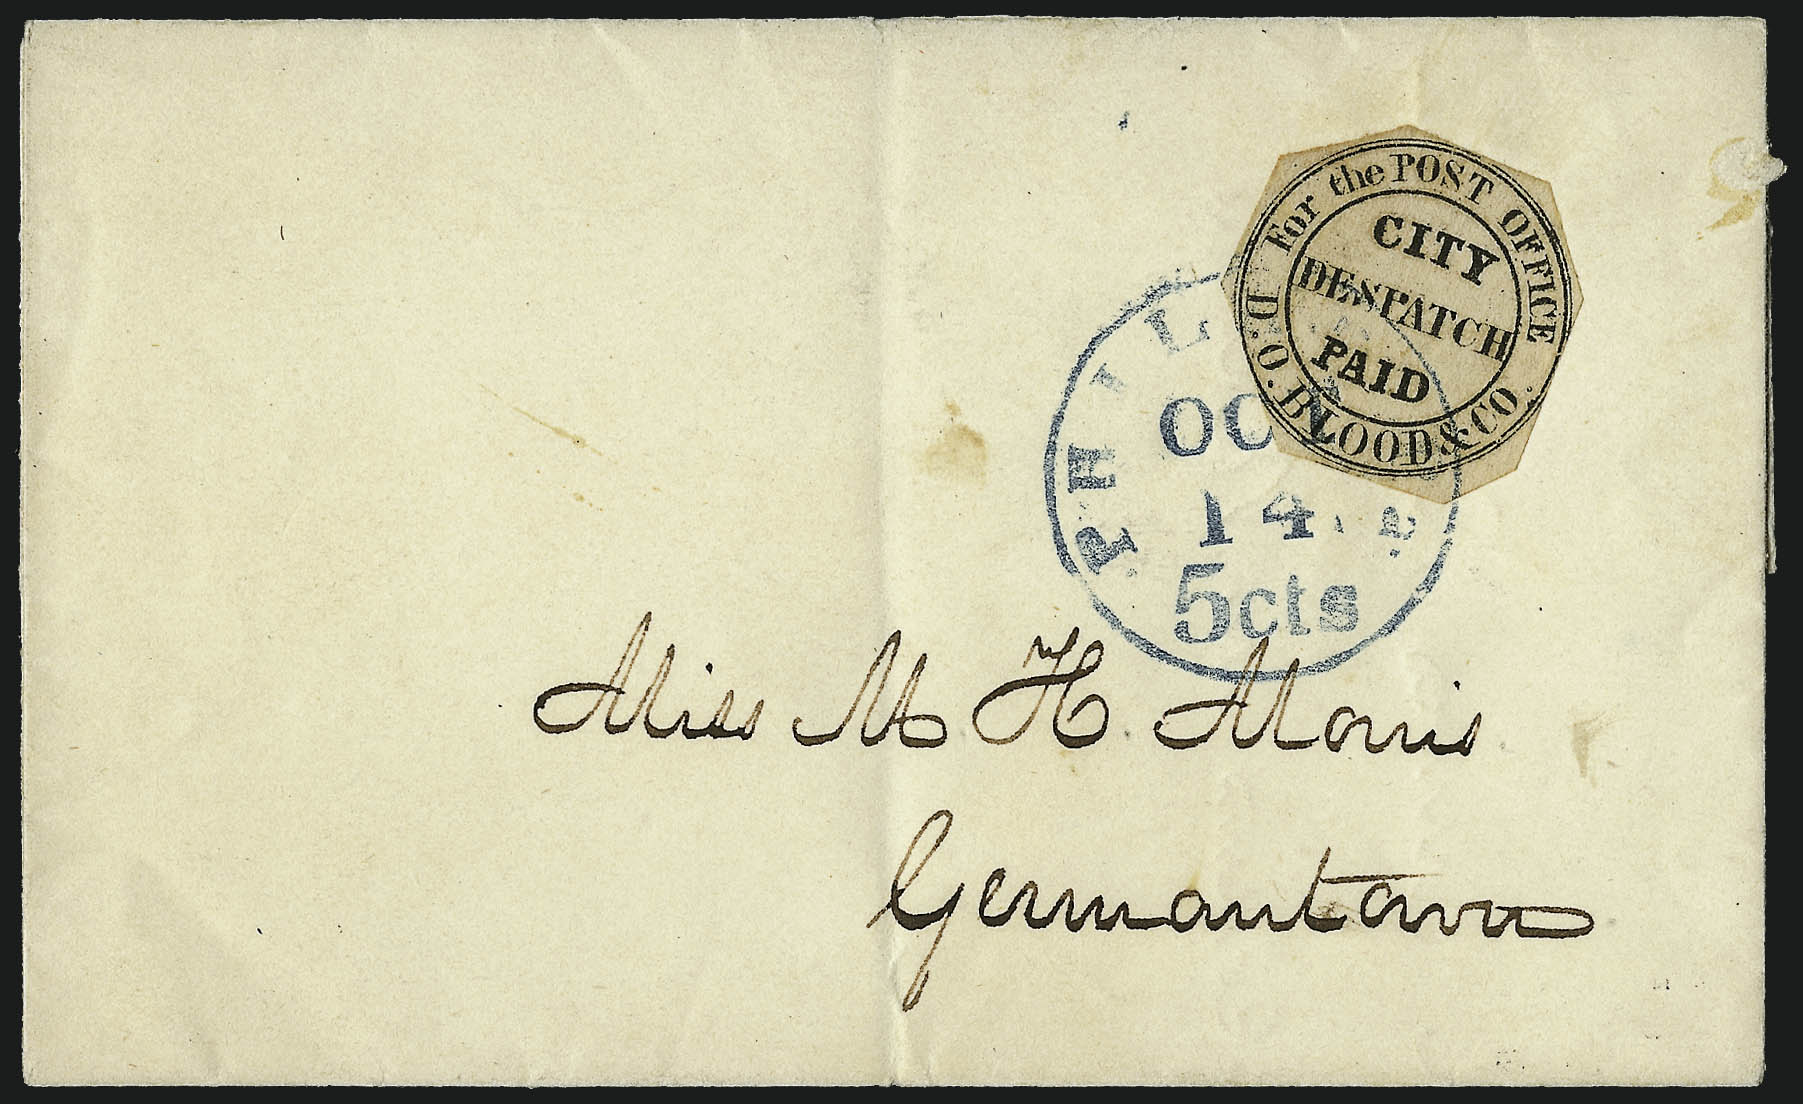 For the POST OFFICE
CITY
DESPATCH
PAID
D.O. BLOOD & CO.
PHIL
OCT
14
5cts
Miss M H Morris
Germantown